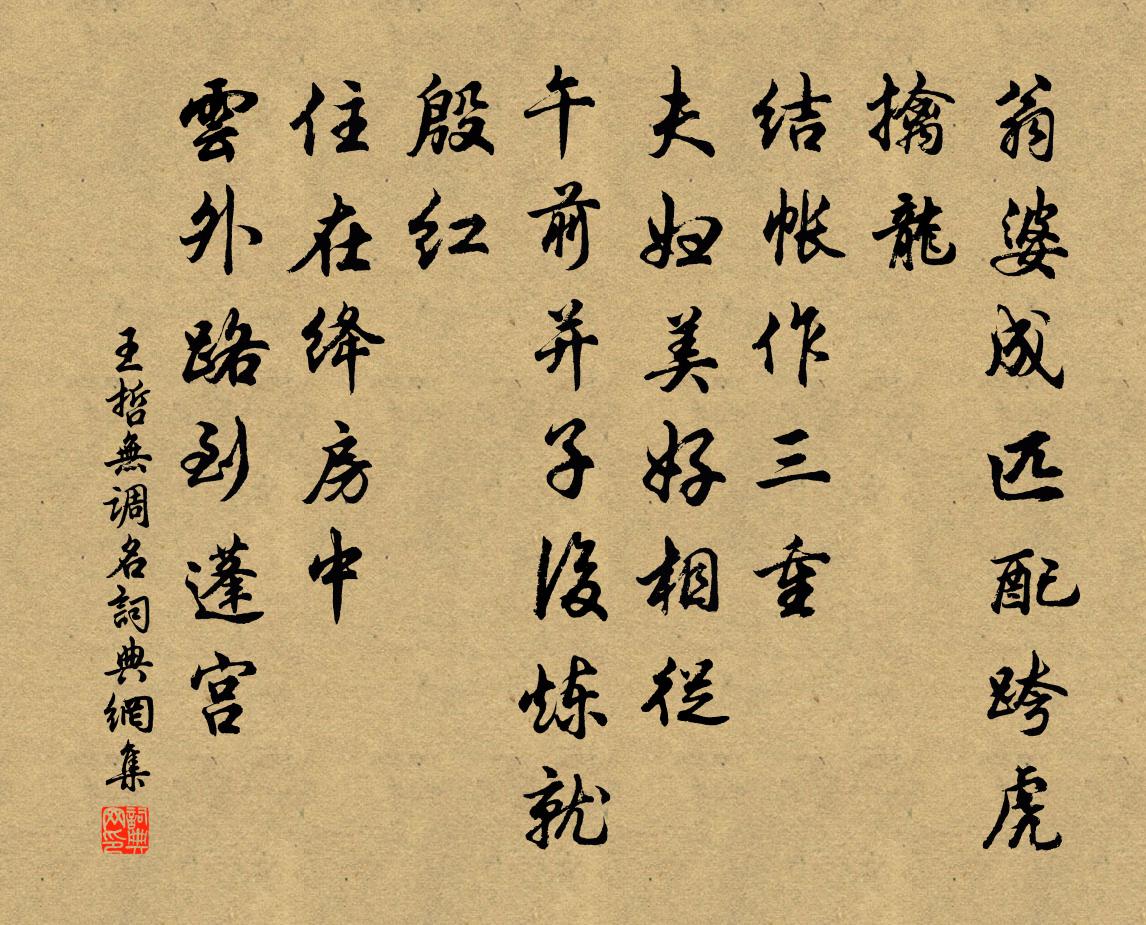 翁婆成匹配跨虎
擒龍
结帐作三重
夫妇美好相從
午前并子後炼就
殷红
住在绛房中
雲外路到蓬宫
王哲無调名詞典網集
詞典网印